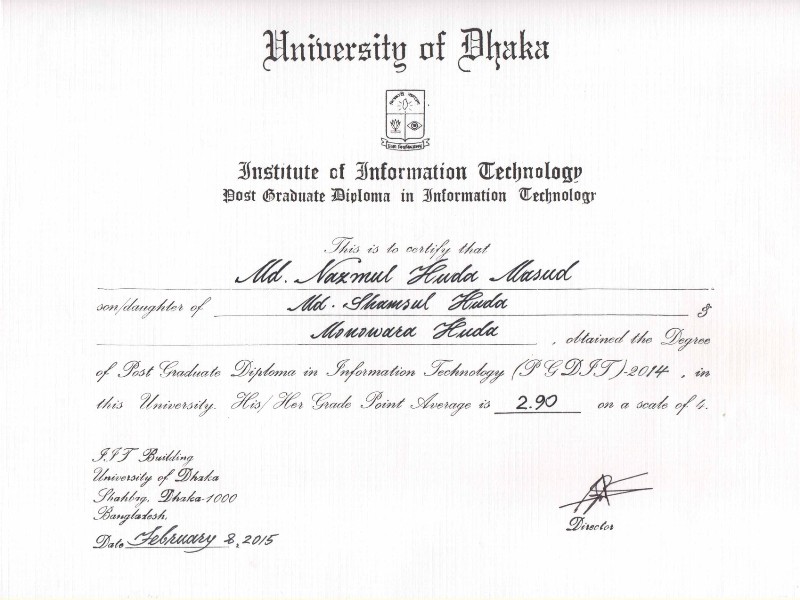 University of Dhaka
Institute of Information Technology
Post Graduate Diploma in Information Technology
This is to certify that
Md. Nazmul Huda Masud
son/daughter of Md. Shamsul Huda &
Monowara Huda , obtained the Degree
of Post Graduate Diploma in Information Technology (PGDIT)-2014 , in
this University. His/Her Grade Point Average is 2.90 on a scale of 4.
I.I.T Building
University of Dhaka
Shahbag, Dhaka-1000
Bangladesh.
Date February 8, 2015
Director